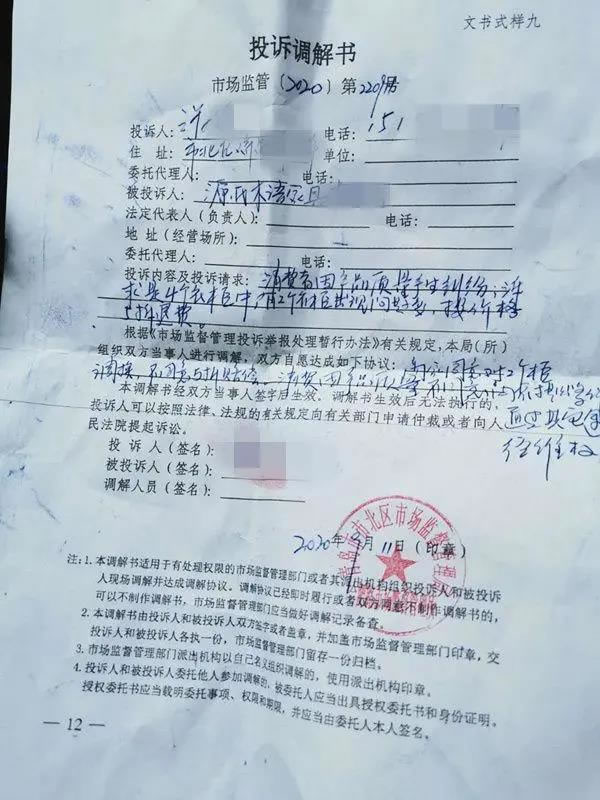 文书式样九
投诉调解书
市场监管（2020）第220号
投诉人： 电话：151
住 址：市北区 单位：
委托代理人： 电话：
被投诉人：源氏木语家具
法定代表人（负责人）： 电话：
地 址（经营场所）：
委托代理人： 电话：
投诉内容及投诉请求：消费者因产品质量产生纠纷，诉
求是4个衣柜中有2个衣柜出现问题，按价格
折退货。
根据《市场监督管理投诉举报处理暂行办法》有关规定，本局（所）
组织双方当事人进行调解，双方自愿达成如下协议：同意对2个柜
调换，不同意
本调解书经双方当事人签字后生效。调解书生效后无法执行的，
投诉人可以按照法律、法规的有关规定向有关部门申请仲裁或者向人
民法院提起诉讼。
途
径维权
投 诉 人（签名）：
被投诉人（签名）：
调解人员（签名）：
2020年9月11日（印章）
市北区市场监督管理局
注：1. 本调解书适用于有处理权限的市场监督管理部门或者其派出机构组织投诉人和被投诉
人现场调解并达成调解协议。调解协议已经即时履行或者双方同意不制作调解书的，
可以不制作调解书，市场监督管理部门应当做好调解记录备查。
2. 本调解书由投诉人和被投诉人双方签字或者盖章，并加盖市场监督管理部门印章，交
投诉人和被投诉人各执一份，市场监督管理部门留存一份归档。
3. 市场监督管理部门派出机构以自己名义组织调解的，使用派出机构印章。
4. 投诉人和被投诉人委托他人参加调解的，被委托人应当出具授权委托书和身份证明。
授权委托书应当载明委托事项、权限和期限，并应当由委托人本人签名。
— 12 —